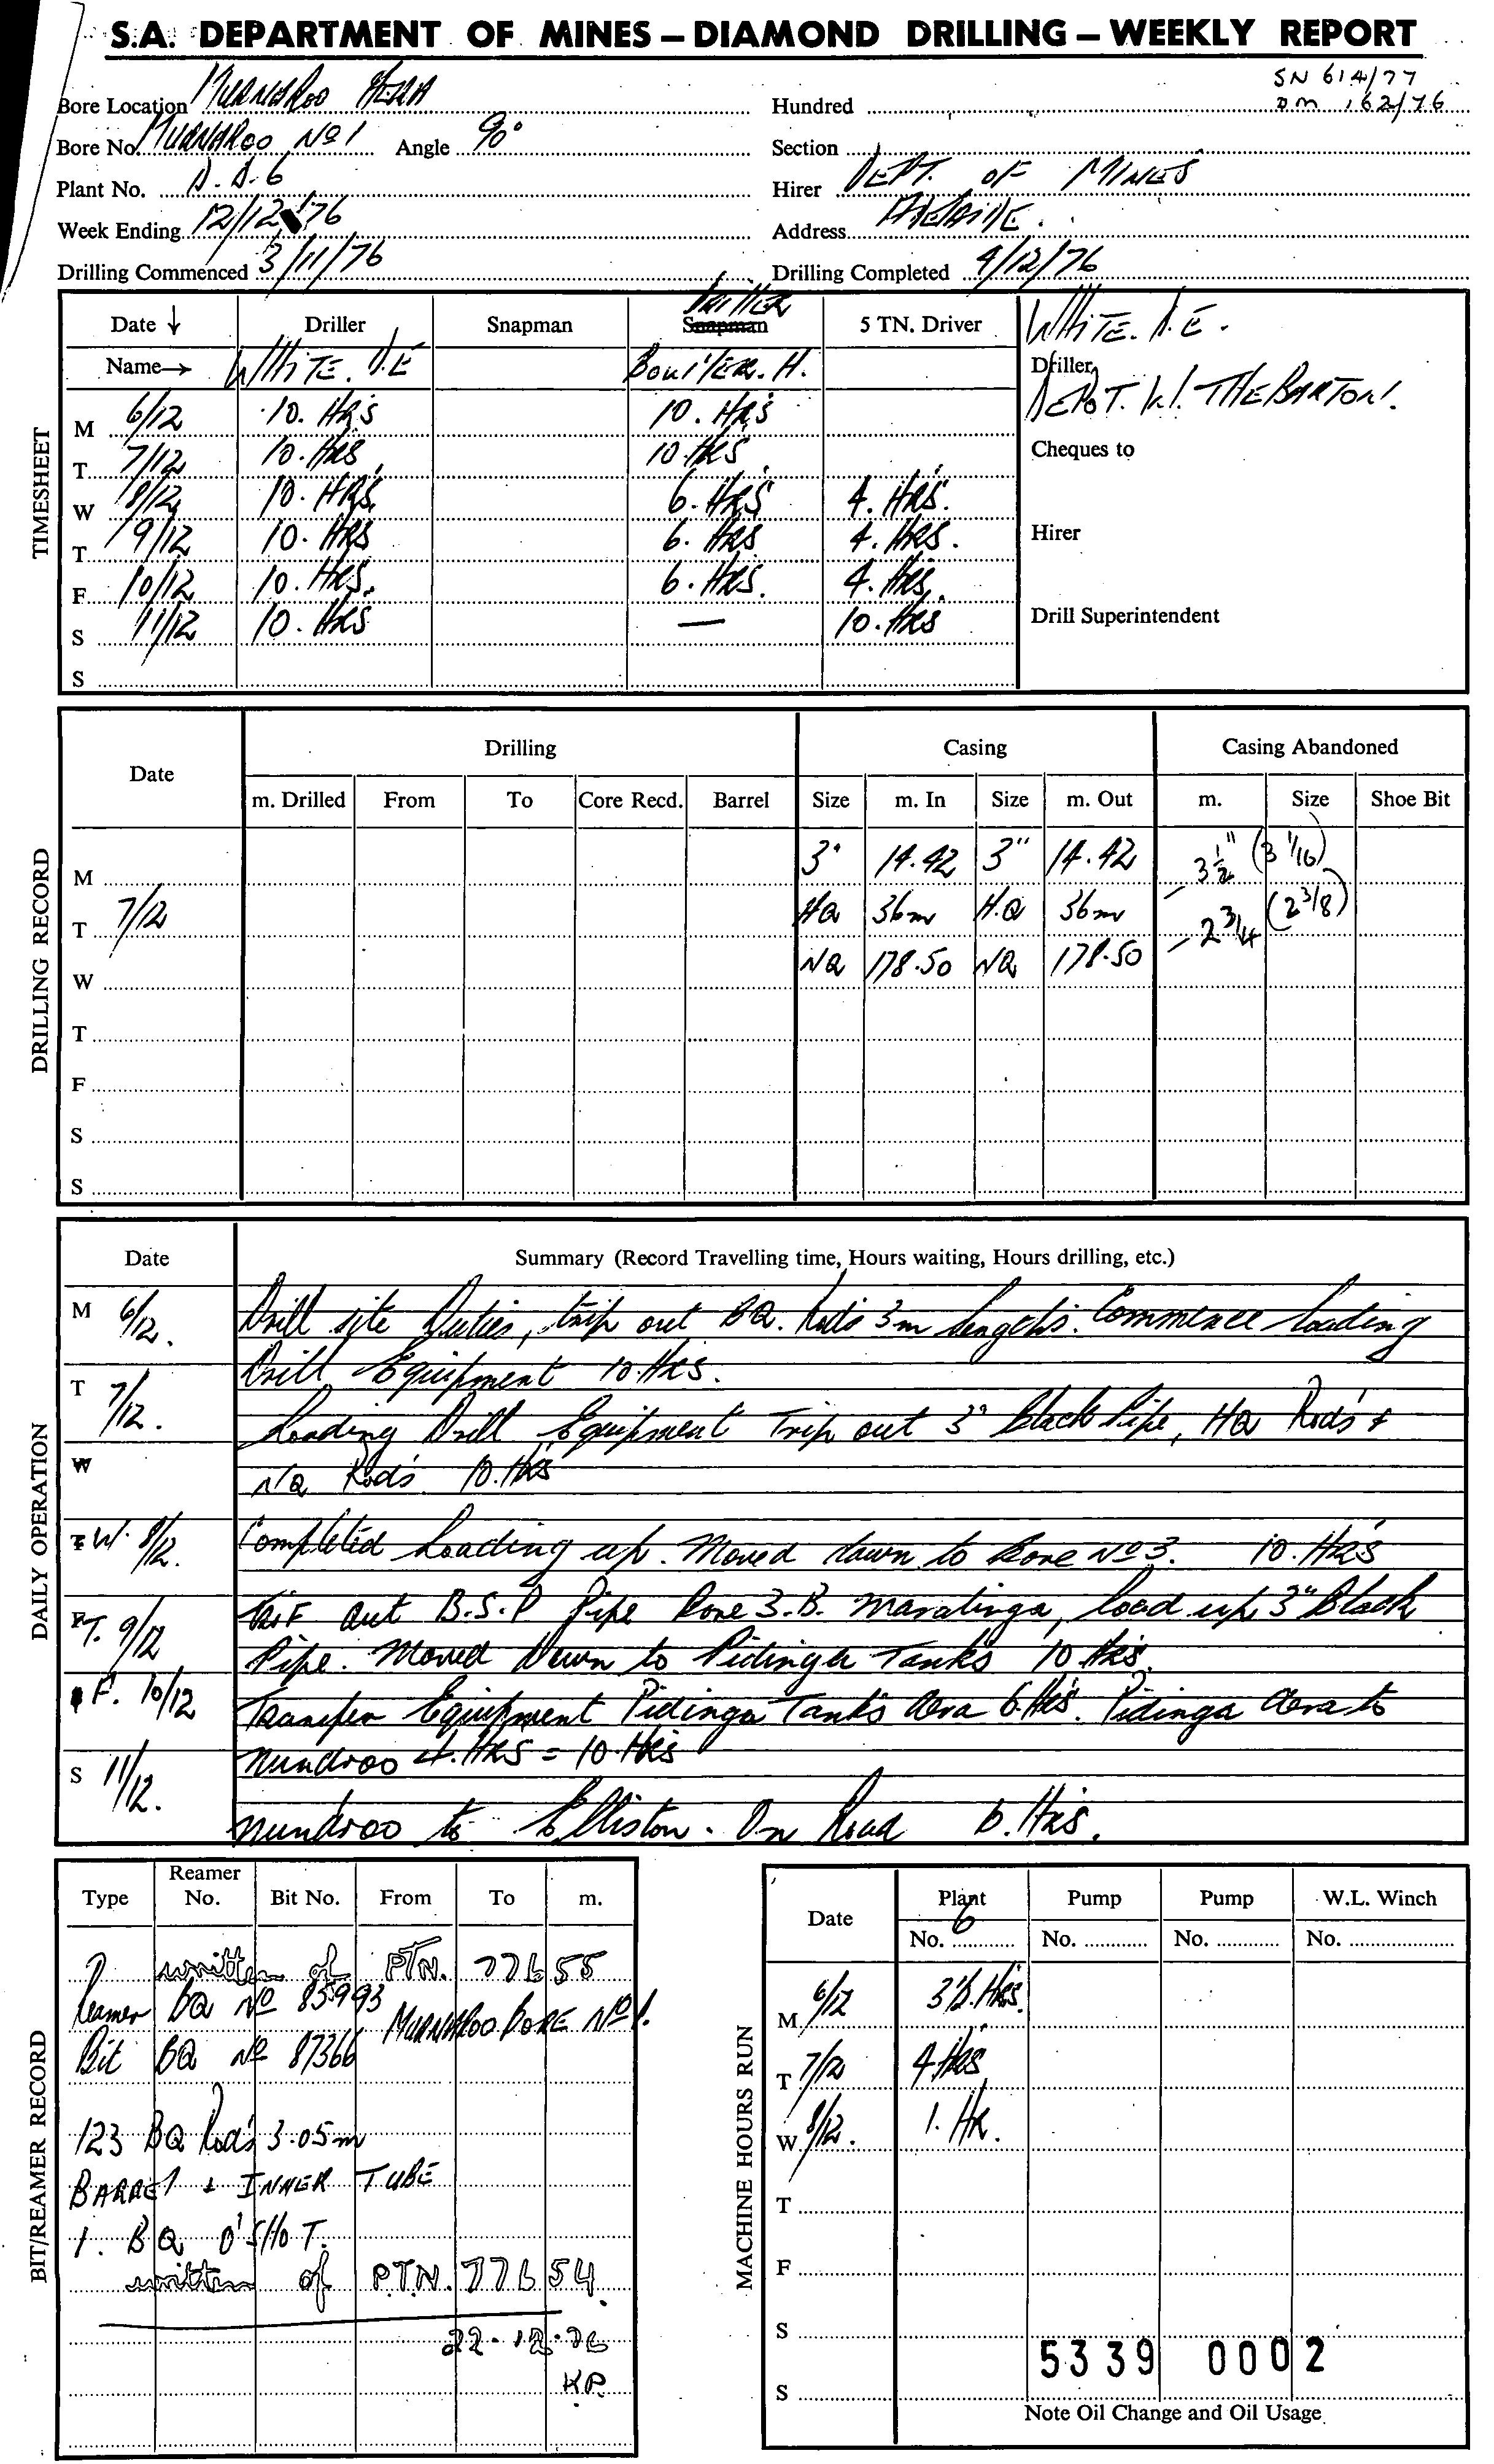 S.A. DEPARTMENT OF MINES – DIAMOND DRILLING – WEEKLY REPORT
SN 614/77
DM 162/76
Bore Location MURNAROO AERA Hundred
Bore No. MURNAROO No 1 Angle 90° Section
Plant No. D.D.6 Hirer DEPT. OF MINES
Week Ending 12/12/76 Address ADELAIDE.
Drilling Commenced 3/11/76 Drilling Completed 4/12/76
TIMESHEET
Date ↓ Driller Snapman Snapman DRILLER 5 TN. Driver WHITE. D.E.
Name→ WHITE. D.E BOULTER. H. Driller
DEPOT. W. THEBARTON.
M 6/12 10. HRS 10. HRS
T 7/12 10. HRS 10. HRS Cheques to
W 8/12 10. HRS 6. HRS 4. HRS.
T 9/12 10. HRS 6. HRS 4. HRS. Hirer
F 10/12 10. HRS. 6. HRS. 4. HRS.
S 11/12 10. HRS — 10. HRS Drill Superintendent
S
DRILLING RECORD
Date Drilling Casing Casing Abandoned
m. Drilled From To Core Recd. Barrel Size m. In Size m. Out m. Size Shoe Bit
M 3" 14.42 3" 14.42 – 3 1/2" (3 1/16)
T 7/12 HQ 36m H.Q 36m – 2 3/4 (2 3/8)
W NQ 178.50 NQ 178.50
T
F
S
S
DAILY OPERATION
Date Summary (Record Travelling time, Hours waiting, Hours drilling, etc.)
M 6/12. Drill site Duties, trip out BQ. Rods 3m lengths. Commence loading
Drill Equipment 10. HRS.
T 7/12. Loading Drill Equipment Trip out 3" Black Pipe, HQ Rods +
W NQ Rods 10. HRS
T W. 8/12. Completed Loading up. Moved down to Bore No 3. 10. HRS
F T. 9/12 out B.S.P Pipe Bore 3.B. Maralinga, load up 3" Black
Pipe. Moved Down to Pidinga Tanks 10 Hrs.
F. 10/12 Transfer Equipment Pidinga Tanks Aera 6. Hrs. Pidinga Aera to
Nundroo 4. HRS = 10. HRS
S 11/12.
Nundroo to Elliston. On Road 6. Hrs.
BIT/REAMER RECORD
Type Reamer No. Bit No. From To m.
written of PTN. 77655
Reamer BQ No 85993
MURNAROO BORE No 1.
Bit BQ No 87366
123 BQ Rods 3.05m
BARREL + INNER TUBE
1. BQ O'SHOT.
written of P.T.N. 77654.
22.12.76
KP.
MACHINE HOURS RUN
Date Plant Pump Pump W.L. Winch
No. 6 No. No. No.
M 6/12 3½. Hrs.
T 7/12 4 Hrs
W 8/12. 1. HR.
T
F
S
5339 0002
S
Note Oil Change and Oil Usage